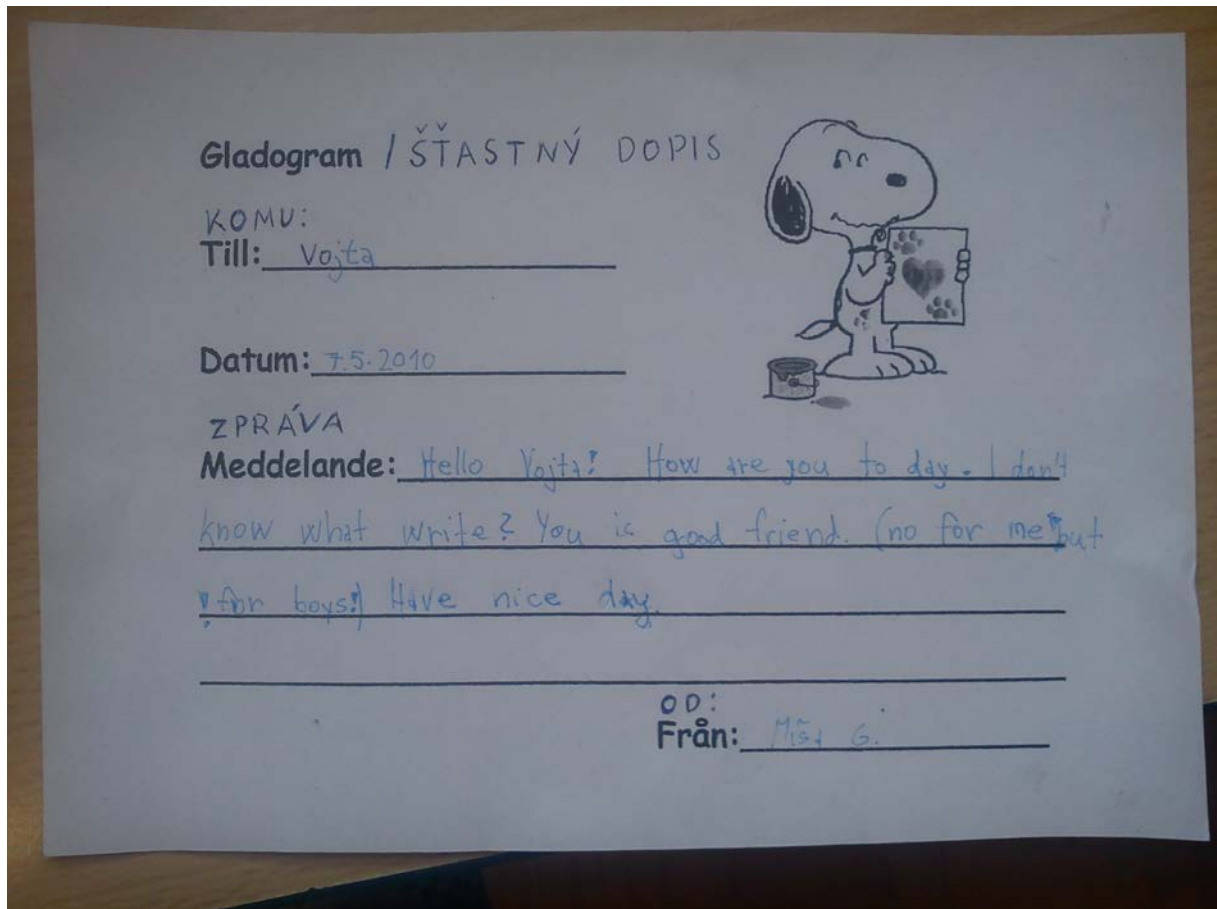 Gladogram / ŠŤASTNÝ DOPIS
KOMU:
Till: Vojta
Datum: 7.5.2010
ZPRÁVA
Meddelande: Hello Vojta! How are you to day. I don't
know what write? You is good friend. (no for me but
! for boys!) Have nice day.
OD:
Från: Míša G.